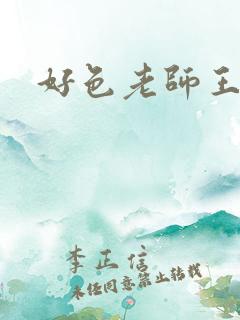 好色老師王
李正信
未经同意禁止转载